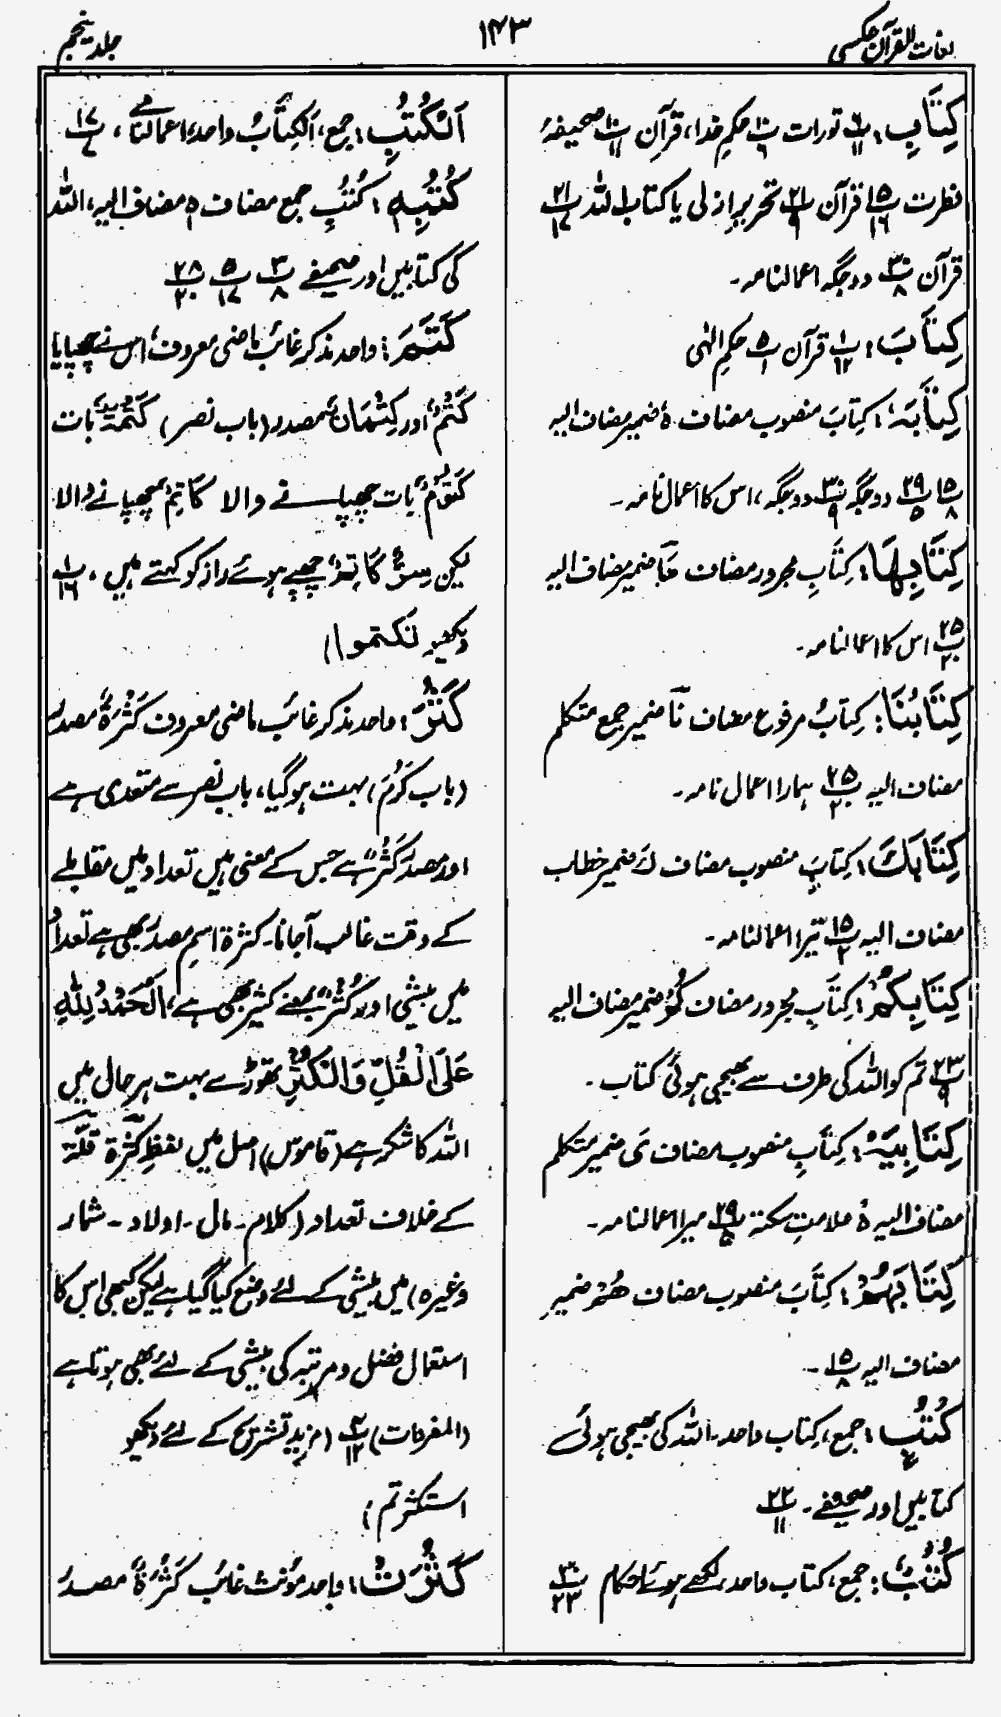 لغات القرآن عکسی
۱۴۳
جلد پنجم
کِتَابِ: پ۶/۱۱ تورات پ۱۰/۹ حکمِ خدا، قرآن پ۱۰/۱۱ صحیفۂ
فطرت پ۱۵/۱۶ قرآن پ۲۱/۹ تحریرِ ازلی یا کتاب اللہ پ۲۱/۱۷
قرآن پ۳۰/۸ دو جگہ اعمالنامہ۔
کِتَابَ: پ۱/۱۲ قرآن پ۵/۱ حکمِ الٰہی
کِتَابَہٗ: کِتابَ منصوب مضاف ہٗ ضمیر مضاف الیہ
پ۱۵/۸ پ۲۹/۵ دو جگہ پ۳۰/۹ دو جگہ، اس کا اعمال نامہ۔
کِتَابِهَا: کِتَابِ مجرور مضاف ھَا ضمیر مضاف الیہ
پ۲۵/۲۰ اس کا اعمالنامہ۔
کِتَابُنَا: کِتابُ مرفوع مضاف نَا ضمیر جمع متکلم
مضاف الیہ پ۲۵/۲۰ ہمارا اعمال نامہ۔
کِتَابَکَ: کِتابَ منصوب مضاف کَ ضمیر خطاب
مضاف الیہ پ۱۵/۲ تیرا اعمالنامہ۔
کِتَابِکُمْ: کِتَابِ مجرور مضاف کُمْ ضمیر مضاف الیہ
پ۲۳/۹ تم کو اللہ کی طرف سے بھیجی ہوئی کتاب۔
کِتَابِیَہْ: کِتَابِ منصوب مضاف یَ ضمیر متکلم
مضاف الیہ ہْ علامتِ سکتہ پ۲۹/۵ میرا اعمالنامہ۔
کِتَابَهُمْ: کِتَابَ منصوب مضاف هُمْ ضمیر
مضاف الیہ پ۱۵/۸۔
کُتُبٍ: جمع، کِتاب واحد۔ اللہ کی بھیجی ہوئی
کتابیں اور صحیفے۔ پ۲۲/۱۱
کُتُبٌ: جمع، کتاب واحد، لکھے ہوئے احکام پ۳۰/۲۳
اَلْکُتُبِ: جمع، اَلکِتَابُ واحد، اعمالنامے، پ۱۷/۷
کُتُبِہٖ: کُتُبِ جمع مضاف ہٖ مضاف الیہ، اللہ
کی کتابیں اور صحیفے پ۳/۸ پ۵/۱۷ پ۲۸/۲۰
کَتَمَ: واحد مذکر غائب ماضی معروف، اس نے چھپایا
کَتْمٌ اور کِتْمَانٌ مصدر (باب نصر) کَتْمَۃٌ بات
کَتُوْمٌ بات چھپانے والا کَاتِمٌ چھپانے والا
لیکن سِرٌّ کَاتِمٌ چھپے ہوئے راز کو کہتے ہیں، پ۱/۱۶
(دیکھو تکتموا)
کَثُرَ: واحد مذکر غائب ماضی معروف کَثْرَۃٌ مصدر
(باب کَرُمَ) بہت ہو گیا، باب نصر سے متعدی ہے
اور مصدر کَثْرٌ ہے جس کے معنی ہیں تعداد میں مقابلے
کے وقت غالب آجانا۔ کثرۃ اسم مصدر بھی ہے تعداد
میں بیشی اور کُثْرٌ بمعنے کثیر بھی ہے، اَلْحَمْدُ لِلّٰہِ
عَلَی الْقُلِّ وَالْکُثْرِ تھوڑے بہت ہر حال میں
اللہ کا شکر ہے (قاموس) اصل میں لفظِ کَثْرَۃ قِلَّۃ
کے خلاف تعداد (کلام۔ مال۔ اولاد۔ شمار
وغیرہ) میں بیشی کے لئے وضع کیا گیا ہے لیکن کبھی اس کا
استعمال فضل و مرتبہ کی بیشی کے لئے بھی ہوتا ہے
(المفردات) پ۴/۱۲ (مزید تشریح کے لئے دیکھو
استکثرتم)
کَثُرَتْ: واحد مؤنث غائب کَثْرَۃٌ مصدر